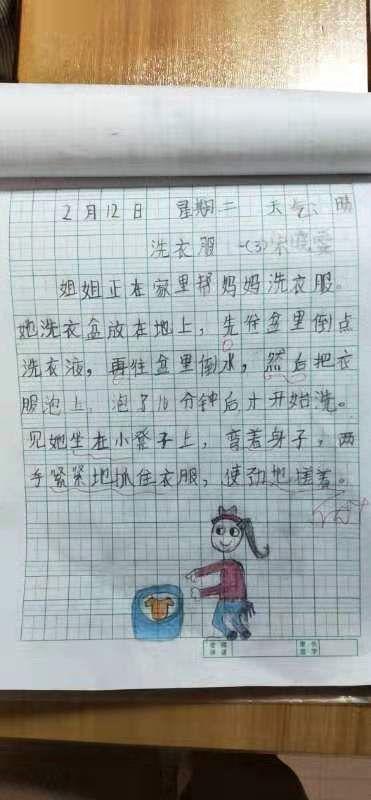 2月12日 星期二 天气:晴
洗衣服 一(3)
姐姐正在家里帮妈妈洗衣服。
她洗衣盆放在地上，先往盆里倒点
洗衣液，再往盆里倒水，然后把衣
服泡上，泡了10分钟后才开始洗。
见她坐在小凳子上，弯着身子，两
手紧紧地抓住衣服，使劲地搓着。